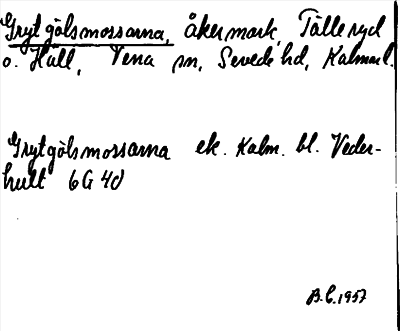 Grytgölsmossarna, åkermark, Tälleryd
o. Hall, Vena sn, Sevede hd, Kalmar l.
Grytgölsmossarna ek. Kalm. bl. Veder-
hult 6G 4d
B.C. 1957